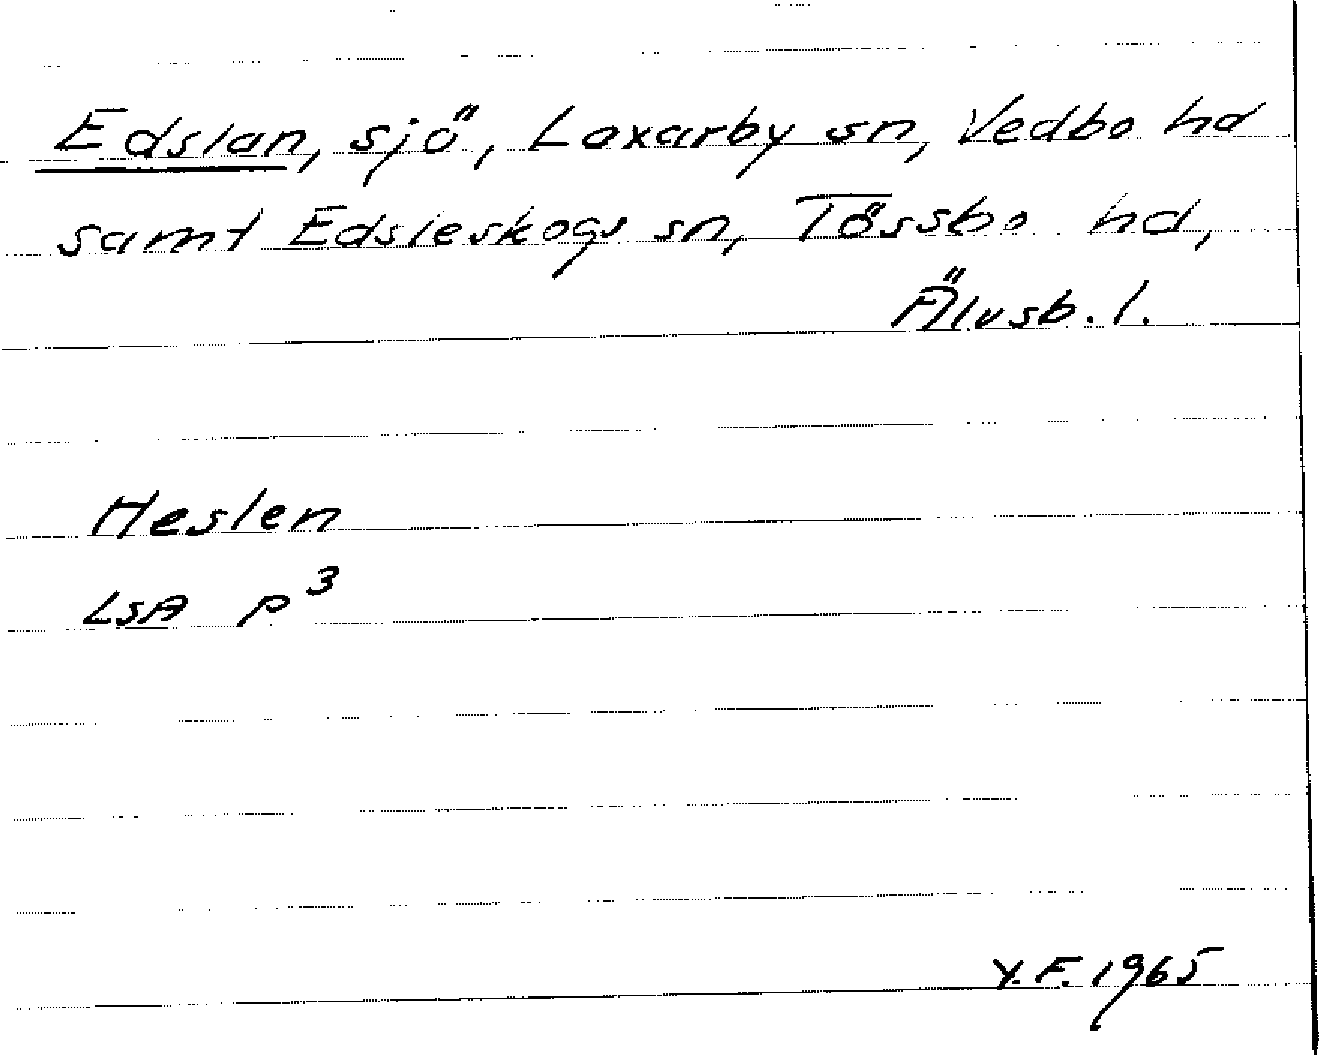 Edslan, sjö, Laxarby sn, Vedbo hd
samt Edsleskogs sn, Tössbo hd,
Älvsb. l.
Heslen
LSA P³
Y.F. 1965